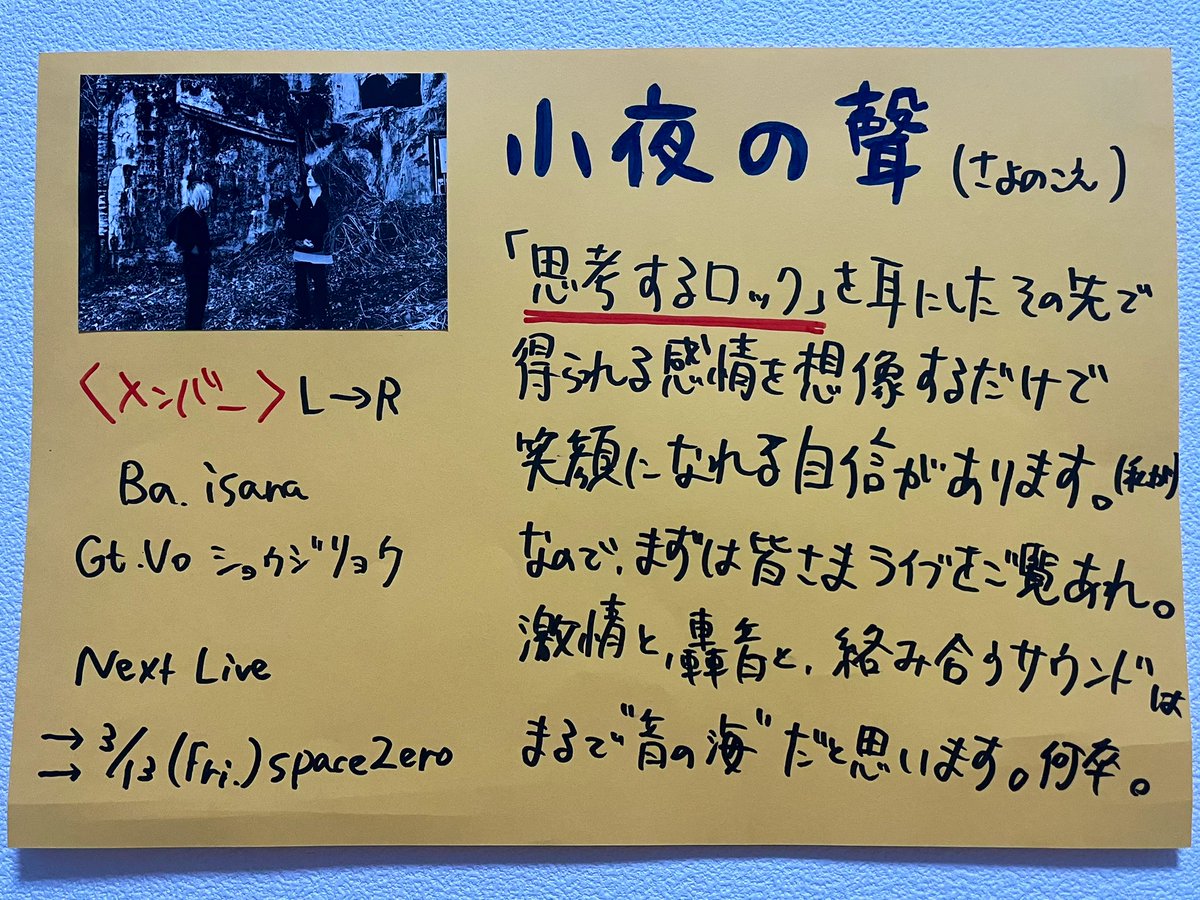 小夜の聲 (さよのこえ)
「思考するロック」を耳にしたその先で
得られる感情を想像するだけで
笑顔になれる自信があります。(私が)
なので、まずは皆さまライブをご覧あれ。
激情と、轟音と、絡み合うサウンドは
まるで"音の海"だと思います。何卒。
〈メンバー〉L→R
Ba. isana
Gt.Vo ショウジリョウ
Next Live
→ 3/13 (fri.) spaceZero
→